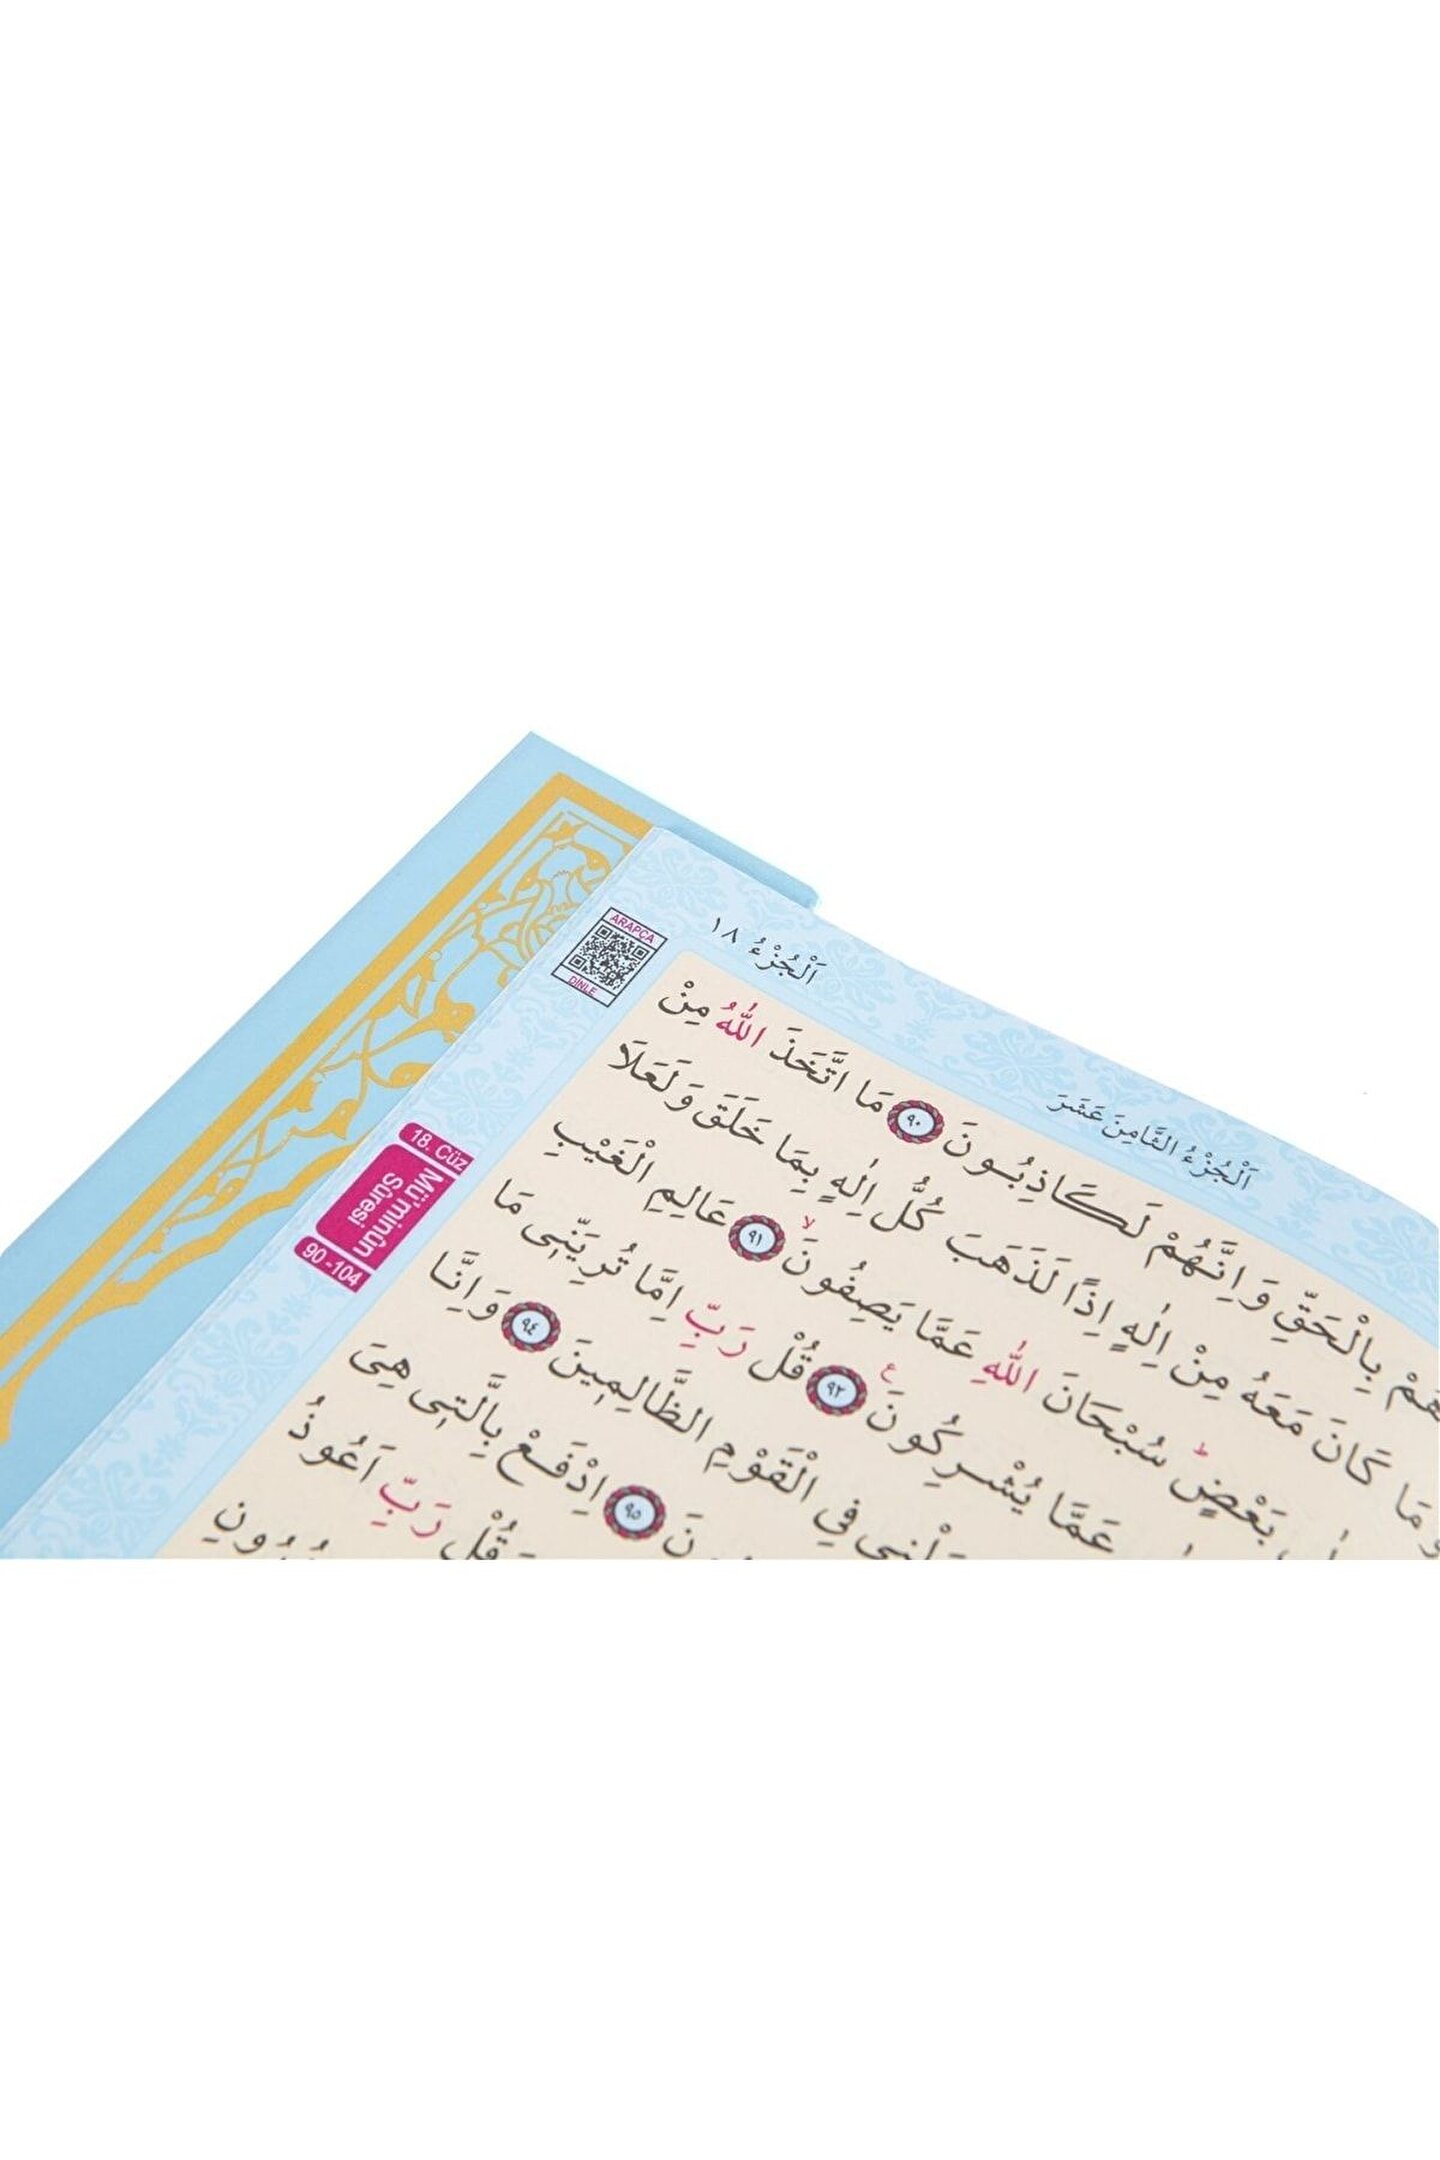 ARAPÇA
DİNLE
اَلْجُزْءُ ١٨
اَلْجُزْءُ الثَّامِنَ عَشَرَ
18. Cüz
Mü'minûn
Sûresi
90 -104
بِالْحَقِّ وَاِنَّهُمْ لَكَاذِبُونَ ﴿٩٠﴾ مَا اتَّخَذَ اللّٰهُ مِنْ
كَانَ مَعَهُ مِنْ اِلٰهٍ اِذًا لَذَهَبَ كُلُّ اِلٰهٍ بِمَا خَلَقَ وَلَعَلَا
بَعْضٍ ط سُبْحَانَ اللّٰهِ عَمَّا يَصِفُونَ لا ﴿٩١﴾ عَالِمِ الْغَيْبِ
عَمَّا يُشْرِكُونَ ع ﴿٩٢﴾ قُلْ رَبِّ اِمَّا تُرِيَنّ۪ى مَا
فِى الْقَوْمِ الظَّالِم۪ينَ ﴿٩٤﴾ وَاِنَّا
﴿٩٥﴾ اِدْفَعْ بِالَّت۪ى هِىَ
وَقُلْ رَبِّ اَعُوذُ